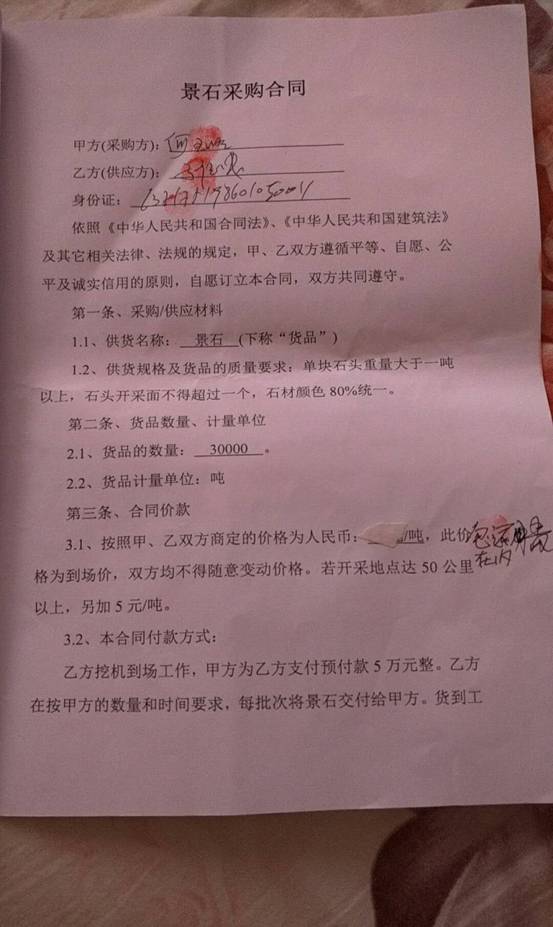 景石采购合同
甲方(采购方)：何
乙方(供应方)：
身份证：
依照《中华人民共和国合同法》、《中华人民共和国建筑法》
及其它相关法律、法规的规定，甲、乙双方遵循平等、自愿、公
平及诚实信用的原则，自愿订立本合同，双方共同遵守。
第一条、采购/供应材料
1.1、供货名称：景石(下称“货品”)
1.2、供货规格及货品的质量要求：单块石头重量大于一吨
以上，石头开采面不得超过一个，石材颜色 80%统一。
第二条、货品数量、计量单位
2.1、货品的数量：30000。
2.2、货品计量单位：吨
第三条、合同价款
3.1、按照甲、乙双方商定的价格为人民币：/吨，此价
包运费
在内
格为到场价，双方均不得随意变动价格。若开采地点达 50 公里
以上，另加 5 元/吨。
3.2、本合同付款方式：
乙方挖机到场工作，甲方为乙方支付预付款 5 万元整。乙方
在按甲方的数量和时间要求，每批次将景石交付给甲方。货到工